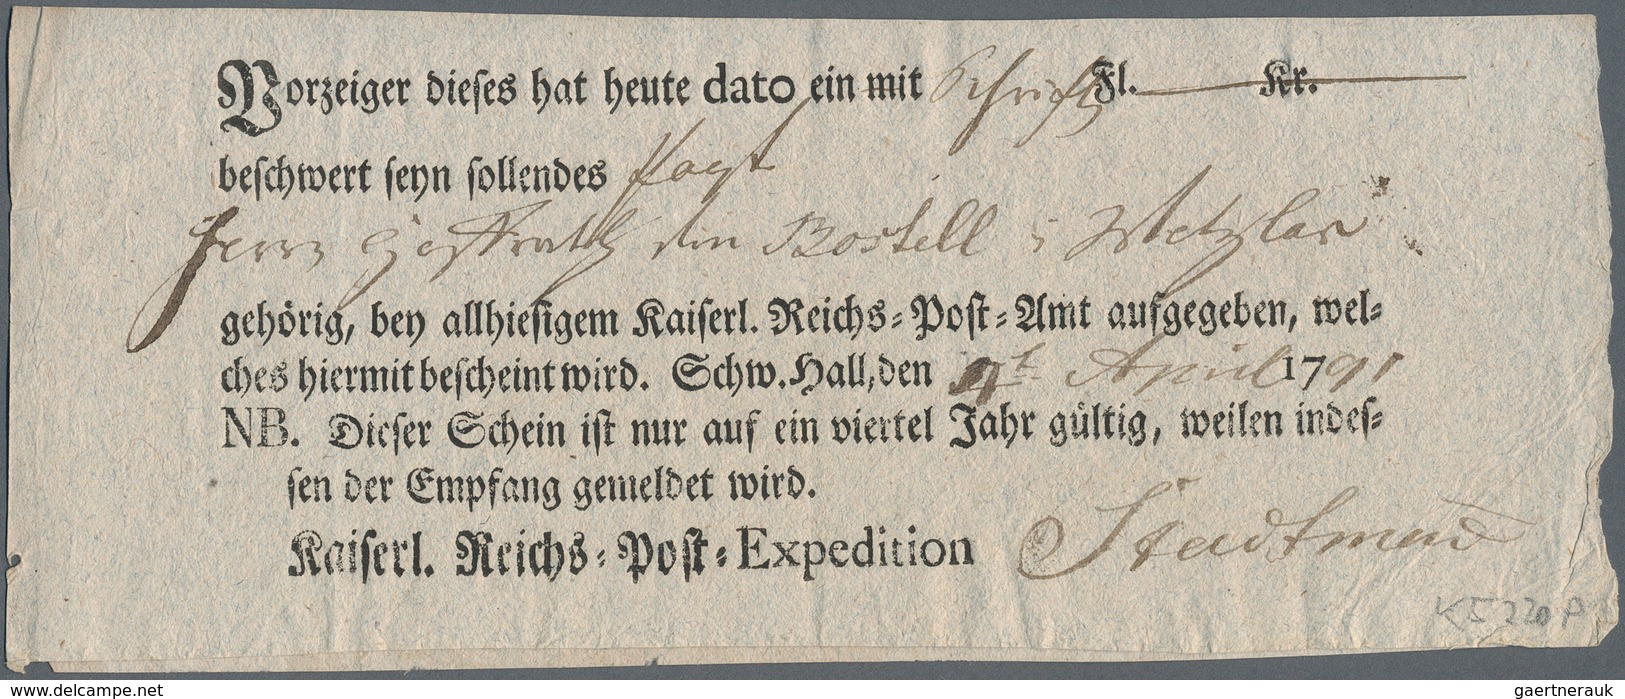 Vorzeiger dieses hat heute dato ein mit Schrift Fl. Kr.
beschwert seyn sollendes
Herrn von Bostell Wetzlar
gehörig, bey allhiesigem Kaiserl. Reichs-Post-Amt aufgegeben, wel-
ches hiermit bescheint wird. Schw. Hall, den April 1791
NB. Dieser Schein ist nur auf ein viertel Jahr gültig, weilen indes-
sen der Empfang gemeldet wird.
Kaiserl. Reichs-Post-Expedition
K5220P
www.delcampe.net
gaertnerauk